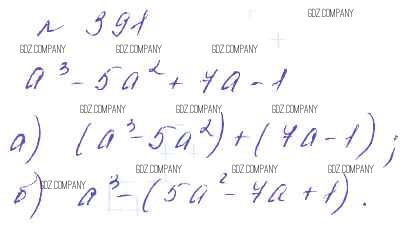 GDZ.COMPANY
№ 391
GDZ.COMPANY GDZ.COMPANY GDZ.COMPANY
a³ - 5a² + 7a - 1
GDZ.COMPANY GDZ.COMPANY GDZ.COMPANY
а) (a³ - 5a²) + (7a - 1);
GDZ.COMPANY GDZ.COMPANY GDZ.COMPANY
GDZ.COMPANY
б) a³ - (5a² - 7a + 1).